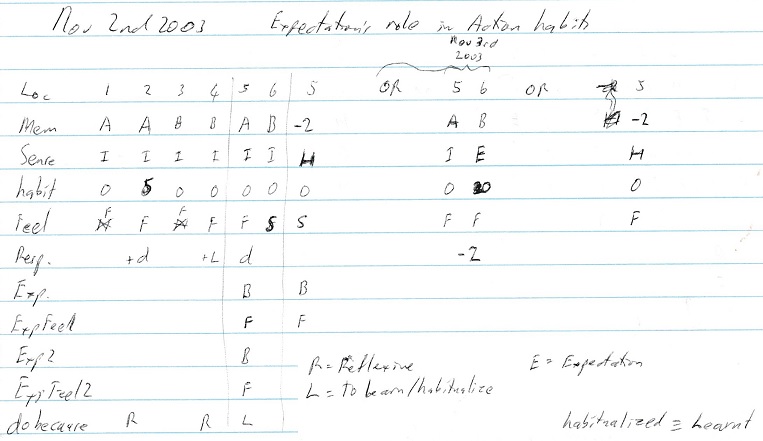 Nov 2nd 2003 Expectation's role in Action habits
Nov 3rd
2003
Loc 1 2 3 4 5 6 5 OR 5 6 OR 5
Mem A A B B A B -2 A B -2
Sense I I I I I I H I E H
habit 0 5 0 0 0 0 0 0 0 0
Feel F F F F F S S F F F
Resp. +d +L d -2
Exp. B B
ExpFeel F F
Exp2 B
ExpFeel2 F
R = Reflexive E = Expectation
L = To Learn/habitualize
do because R R L habitualized ≡ Learnt